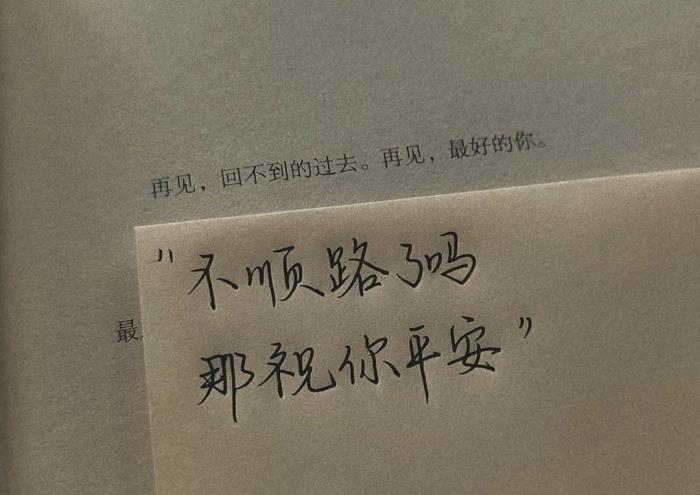 再见，回不到的过去。再见，最好的你。
"不顺路了吗
那祝你平安"
最